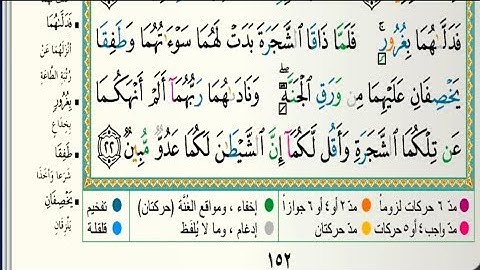 فَدَلَّىٰهُمَا بِغُرُورٍ ۚ فَلَمَّا ذَاقَا ٱلشَّجَرَةَ بَدَتْ لَهُمَا سَوْءَٰتُهُمَا وَطَفِقَا
يَخْصِفَانِ عَلَيْهِمَا مِن وَرَقِ ٱلْجَنَّةِ ۖ وَنَادَىٰهُمَا رَبُّهُمَآ أَلَمْ أَنْهَكُمَا
عَن تِلْكُمَا ٱلشَّجَرَةِ وَأَقُل لَّكُمَآ إِنَّ ٱلشَّيْطَٰنَ لَكُمَا عَدُوٌّ مُّبِينٌ ٢٢
فَدَلَّاهُمَا
أنزلهما عن
رتبة الطاعة
بِغُرُورٍ
بخداع
طَفِقَا
شرعا وأخذا
يَخْصِفَانِ
يلزقان
مدّ ٦ حركات لزوماً
مدّ ٢ أو ٤ أو ٦ جوازاً
إخفاء ، ومواقع الغُنَّة (حركتان)
تفخيم
مدّ واجب ٤ أو ٥ حركات
مدّ حركتان
إدغام ، وما لا يُلفَظ
قلقلة
١٥٢